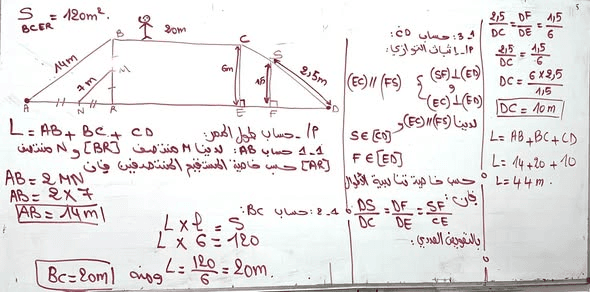 S = 120m².
BCER
B
20m
C
14m
7m
M
6m
1,5
S
2,5m
A
N
R
E
F
D
L = AB + BC + CD
P/ حساب طول الممر:
1-1 حساب AB: لدينا M منتصف [BR] و N منتصف [AR]
حسب خاصية المستقيم المنتصفين فإن
AB = 2MN
AB = 2 x 7
AB = 14m
1-2: حساب BC:
L x l = S
L x 6 = 120
ومنه L = 120/6 = 20m.
BC = 20m
1-3: حساب CD:
P-1 إثبات التوازي:
(EC) // (FS) { (SF) ⊥ (ED)
و
(EC) ⊥ (ED)
لدينا (EC) // (FS) و
S ∈ [CD]
F ∈ [ED]
حسب خاصية تناسبية الأطوال
فإن:
DS/DC = DF/DE = SF/CE
بالتعويض العددي:
2,5/DC = DF/DE = 1,5/6
2,5/DC = 1,5/6
DC = 6 x 2,5/1,5
DC = 10m
L = AB + BC + CD
L = 14 + 20 + 10
L = 44m.